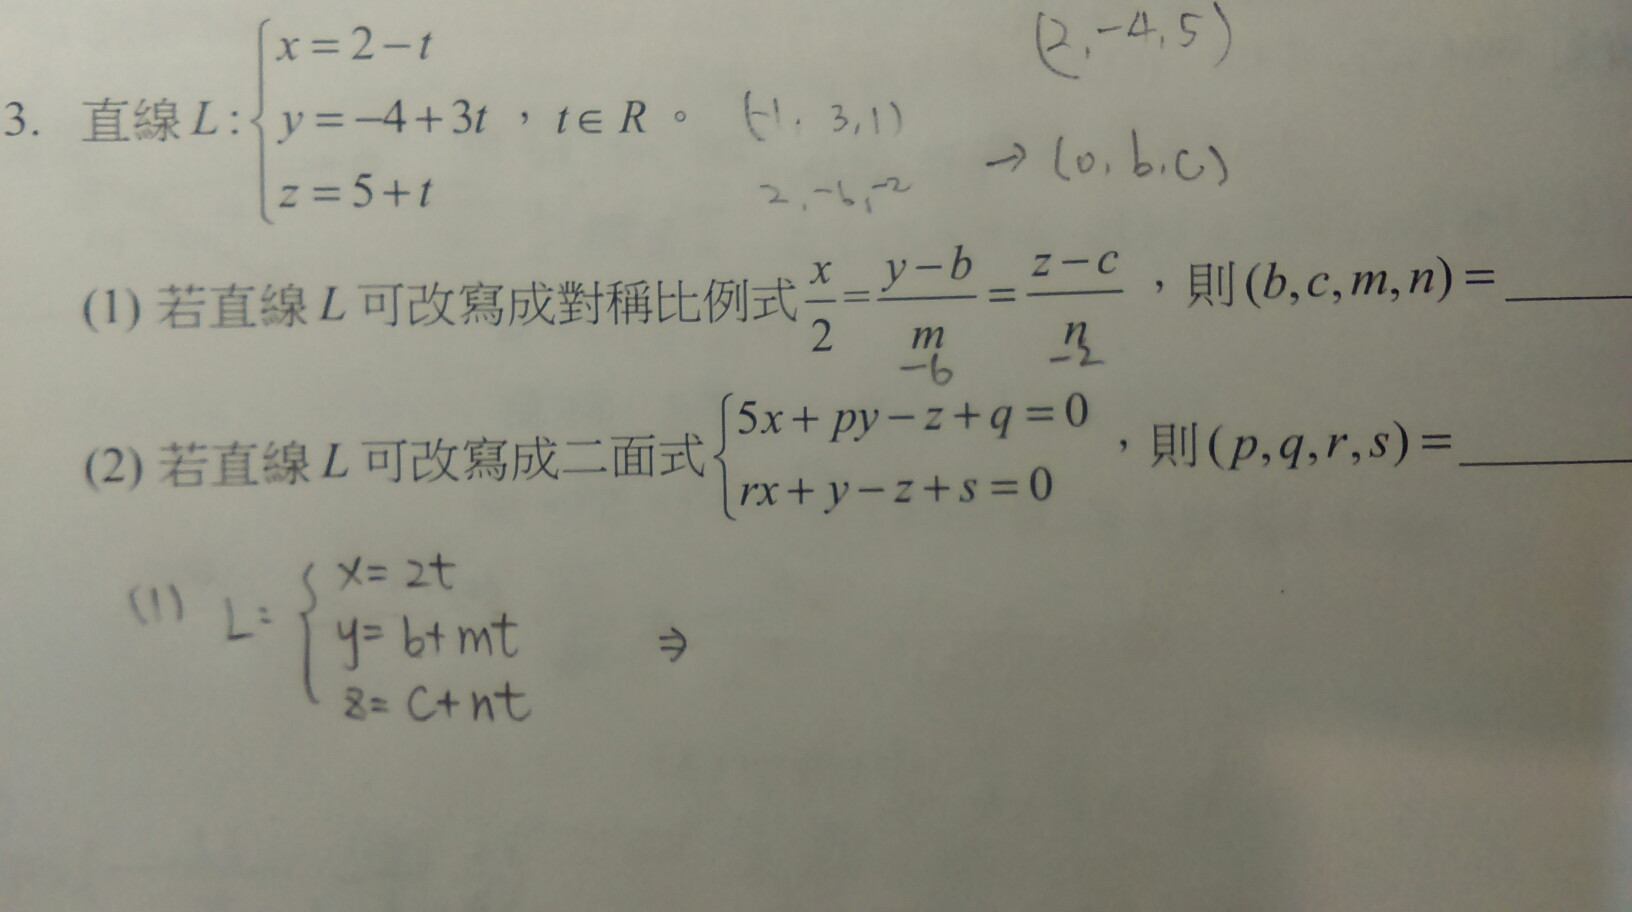 (2,-4,5)
3. 直線 L: { x=2-t
y=-4+3t , t∈R 。 (-1, 3, 1)
z=5+t
→ (0, b, c)
2, -6, -2
(1) 若直線 L 可改寫成對稱比例式 x/2 = (y-b)/m = (z-c)/n ,則(b,c,m,n)= ______
-6 -2
(2) 若直線 L 可改寫成二面式 { 5x+py-z+q=0
rx+y-z+s=0 ,則(p,q,r,s)= ______
(1) L: { x= 2t
y= b+mt ⇒
z= c+nt